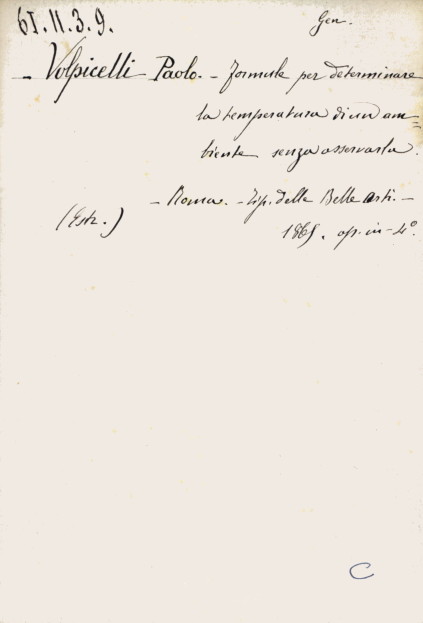 61.11.3.9.
Gen.
- Volpicelli Paolo. - Formule per determinare
la temperatura di un am=
biente senza osservarla.
- Roma. - Tip. delle Belle Arti. -
(Estr.)
1865. op. in-4°.
C